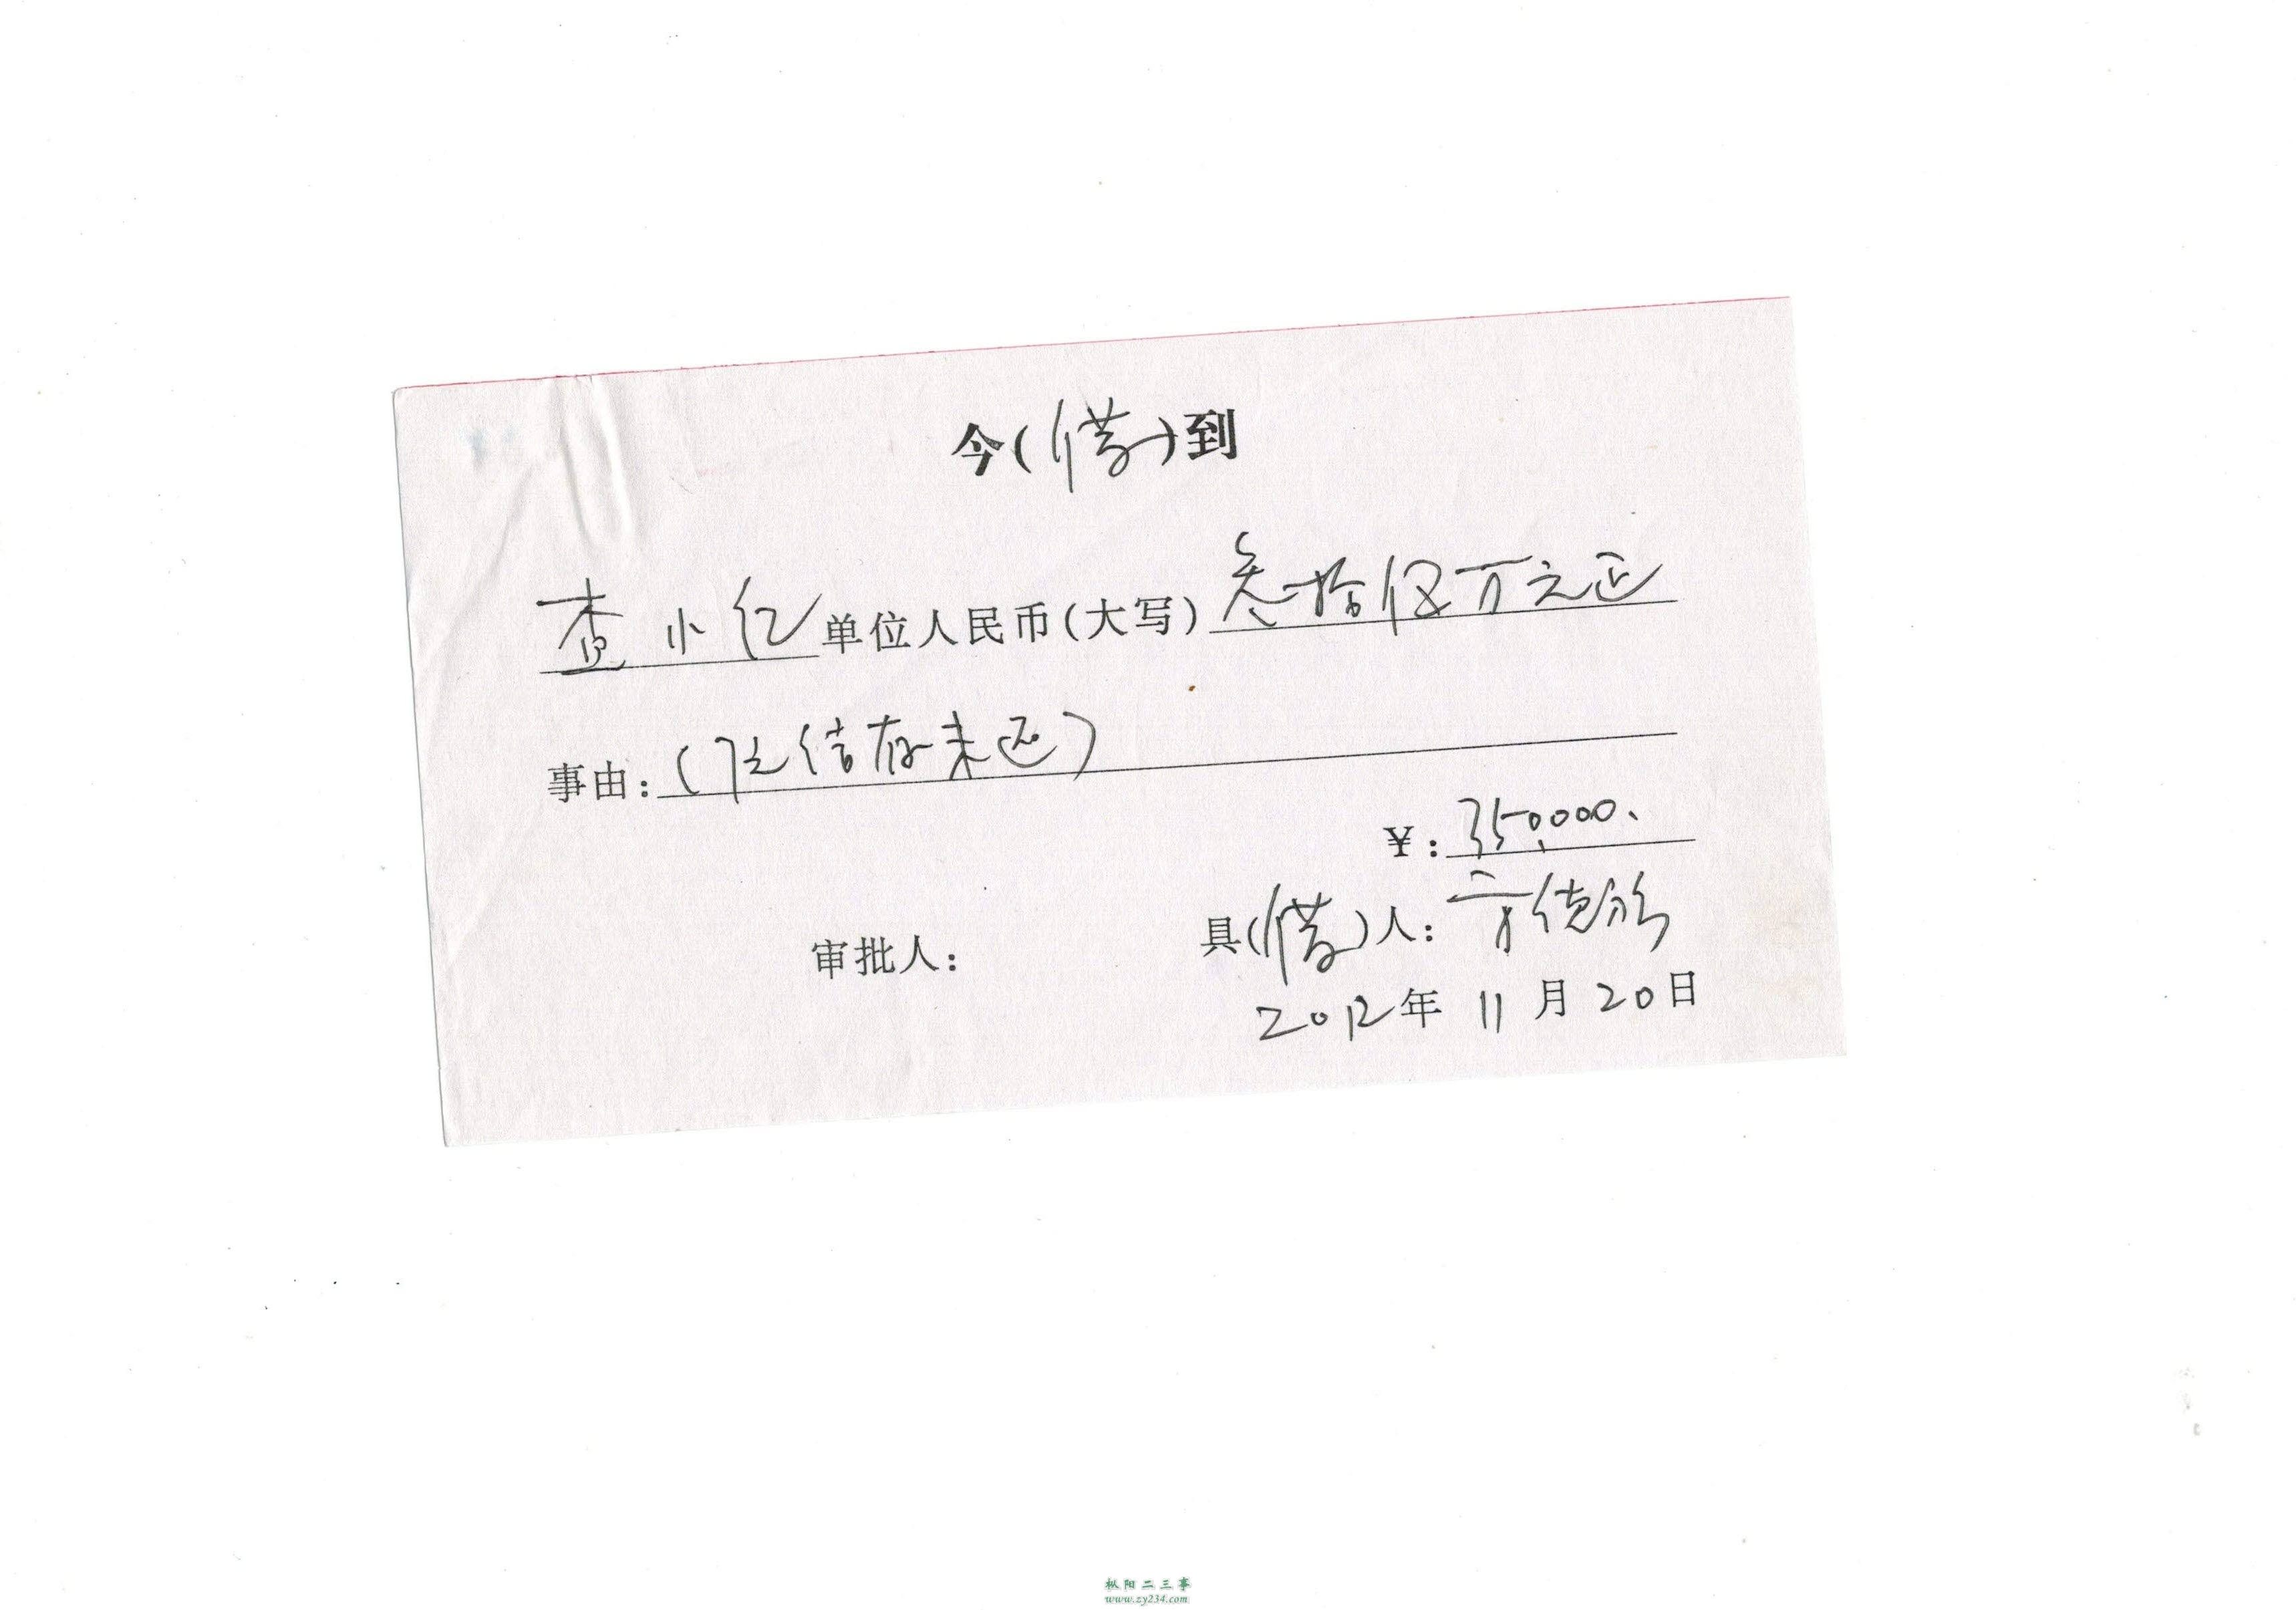 今(借)到
查小红单位人民币(大写)叁拾伍万元正
事由:(信存未还)
¥:350,000.
审批人: 具(借)人:方德
2012年11月20日
枞阳二三事
www.zy234.com